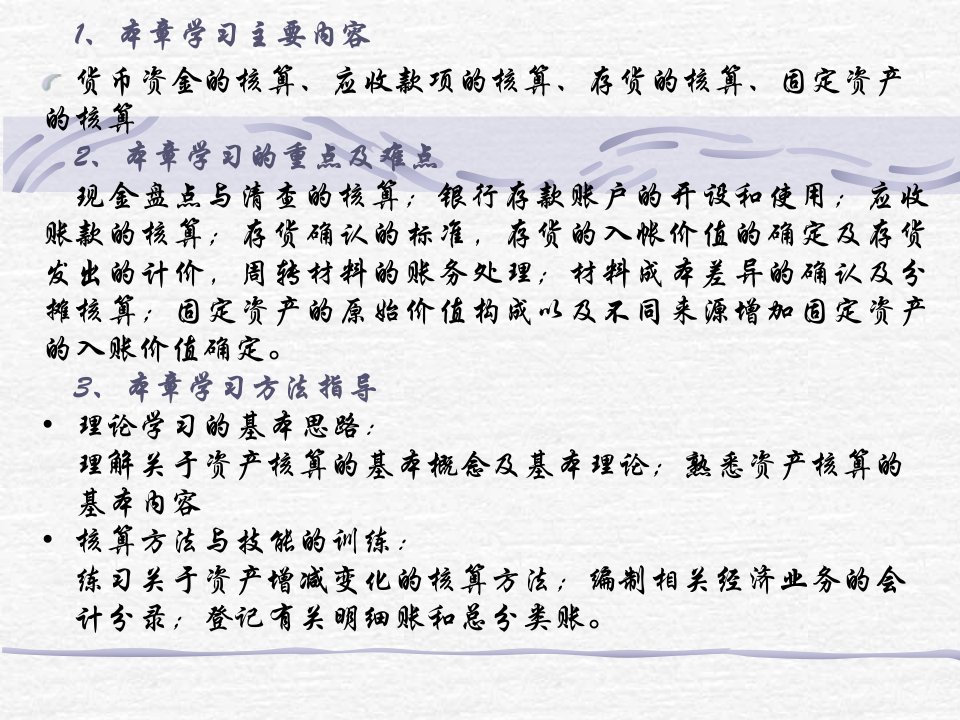 1、本章学习主要内容
货币资金的核算、应收款项的核算、存货的核算、固定资产
的核算
2、本章学习的重点及难点
现金盘点与清查的核算；银行存款账户的开设和使用；应收
账款的核算；存货确认的标准，存货的入帐价值的确定及存货
发出的计价，周转材料的账务处理；材料成本差异的确认及分
摊核算；固定资产的原始价值构成以及不同来源增加固定资产
的入账价值确定。
3、本章学习方法指导
• 理论学习的基本思路：
理解关于资产核算的基本概念及基本理论；熟悉资产核算的
基本内容
• 核算方法与技能的训练：
练习关于资产增减变化的核算方法；编制相关经济业务的会
计分录；登记有关明细账和总分类账。